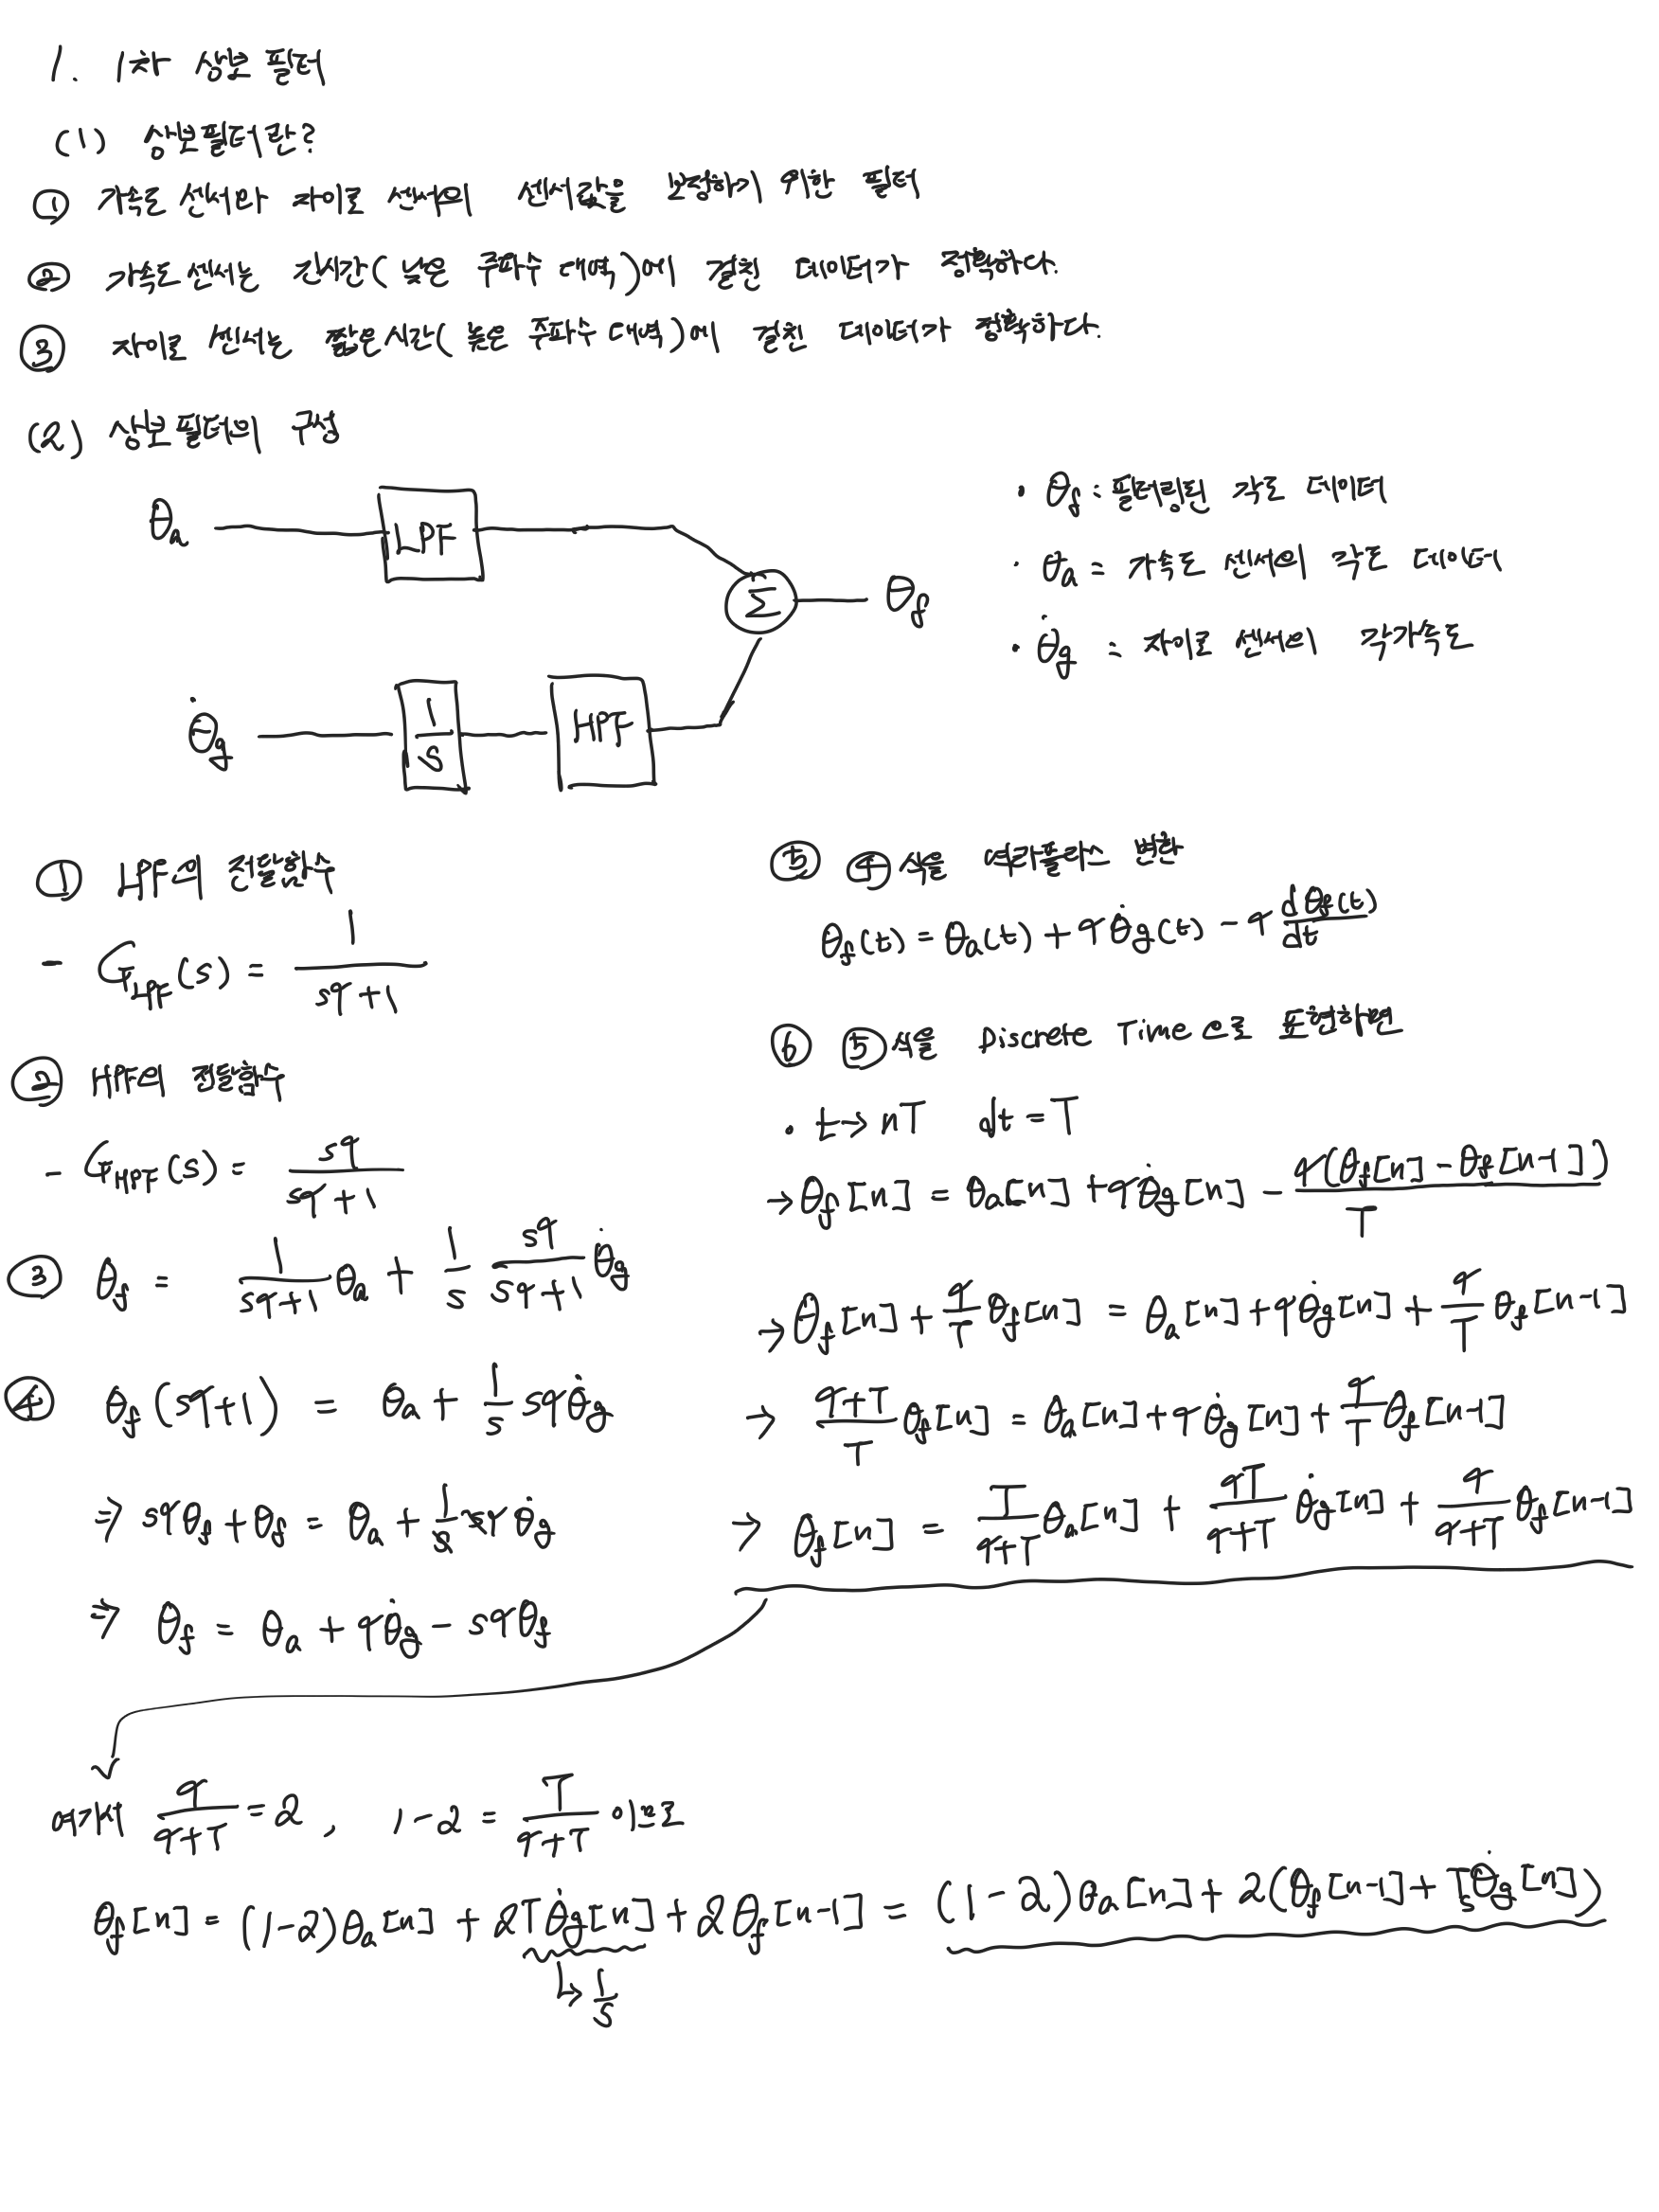 1. 1차 상보 필터
(1) 상보필터란?
① 가속도 센서와 자이로 센서의 센서값을 보정하기 위한 필터
② 가속도 센서는 긴시간(낮은 주파수 대역)에 걸친 데이터가 정확하다.
③ 자이로 센서는 짧은시간(높은 주파수 대역)에 걸친 데이터가 정확하다.
(2) 상보필터의 구성
θa LPF Σ θf
θ̇g 1/s HPF
· θf : 필터링된 각도 데이터
· θa = 가속도 센서의 각도 데이터
· θ̇g = 자이로 센서의 각가속도
① LPF의 전달함수
- G_LPF(s) = 1/(sτ+1)
② HPF의 전달함수
- G_HPF(s) = sτ/(sτ+1)
③ θf = 1/(sτ+1) θa + 1/s sτ/(sτ+1) θ̇g
④ θf(sτ+1) = θa + 1/s sτθ̇g
⇒ sτθf + θf = θa + 1/s sτ θ̇g
⇒ θf = θa + τθ̇g - sτθf
⑤ ④식을 역라플라스 변환
θf(t) = θa(t) + τθ̇g(t) - τ dθf(t)/dt
⑥ ⑤식을 Discrete Time으로 표현하면
· t → nT dt = T
→ θf[n] = θa[n] + τθ̇g[n] - τ(θf[n] - θf[n-1])/T
→ θf[n] + τ/T θf[n] = θa[n] + τθ̇g[n] + τ/T θf[n-1]
→ (τ+T)/T θf[n] = θa[n] + τθ̇g[n] + τ/T θf[n-1]
→ θf[n] = T/(τ+T) θa[n] + τT/(τ+T) θ̇g[n] + τ/(τ+T) θf[n-1]
여기서 τ/(τ+T) = α, 1-α = T/(τ+T) 이므로
θf[n] = (1-α)θa[n] + αTθ̇g[n] + αθf[n-1] = (1-α)θa[n] + α(θf[n-1] + Tsθ̇g[n])
↳ 1/s